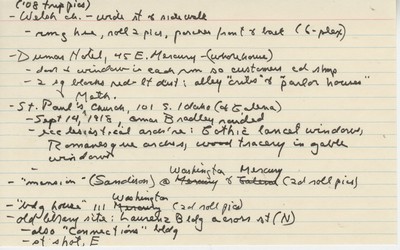 ('08 trip pics)
- Welsh ch. - wide st & sidewalk
- rmg hse, roll 2 pics, porches front & back (6-plex)
- Dumas Hotel, 45 E. Mercury - (whorehouse)
- door & window in each rm so customers cd shop
- 2 sq blocks red-lt dist: alley "cribs" & "parlor houses"
Meth.
- St. Paul's Church, 101 S. Idaho (at Galena)
- Sept 14, 1918, Omar Bradley married
- ecclesiastical archre: Gothic lancet windows, Romanesque arches, wood tracery in gable windows
Washington Mercury
- "mansion" (Sandison) @ Mercury & Galena (2d roll pics)
Washington
- "bdg house" 111 Mercury (2d roll pics)
- old library site: Laurenz Bldg across st (N)
- also "Connections" bldg
- st shot, E